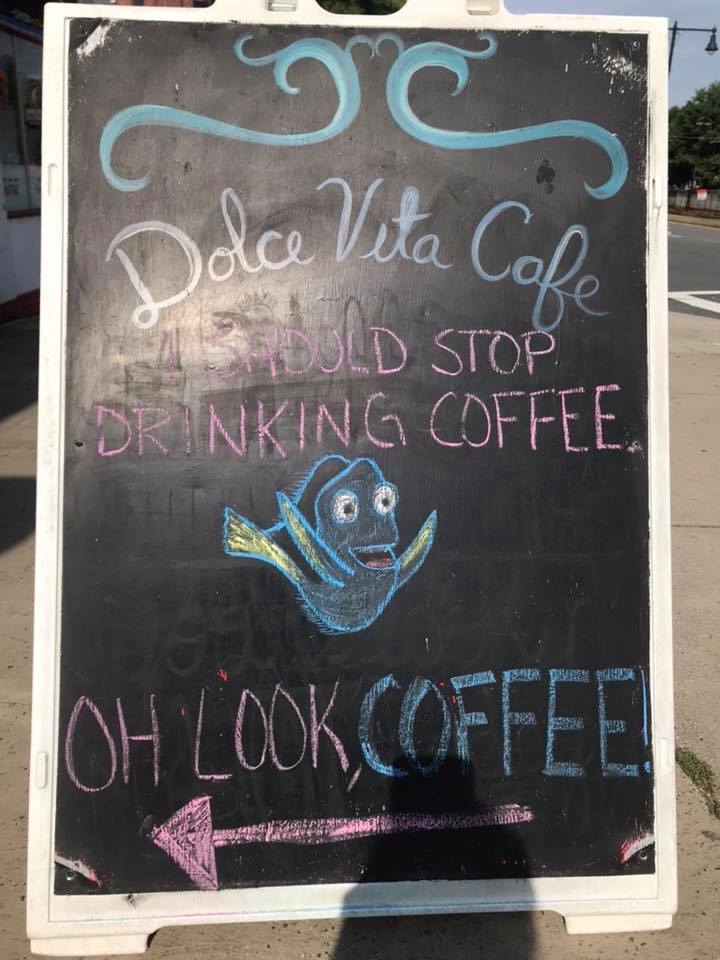 Dolce Vita Cafe
I SHOULD STOP
DRINKING COFFEE.
OH LOOK, COFFEE!